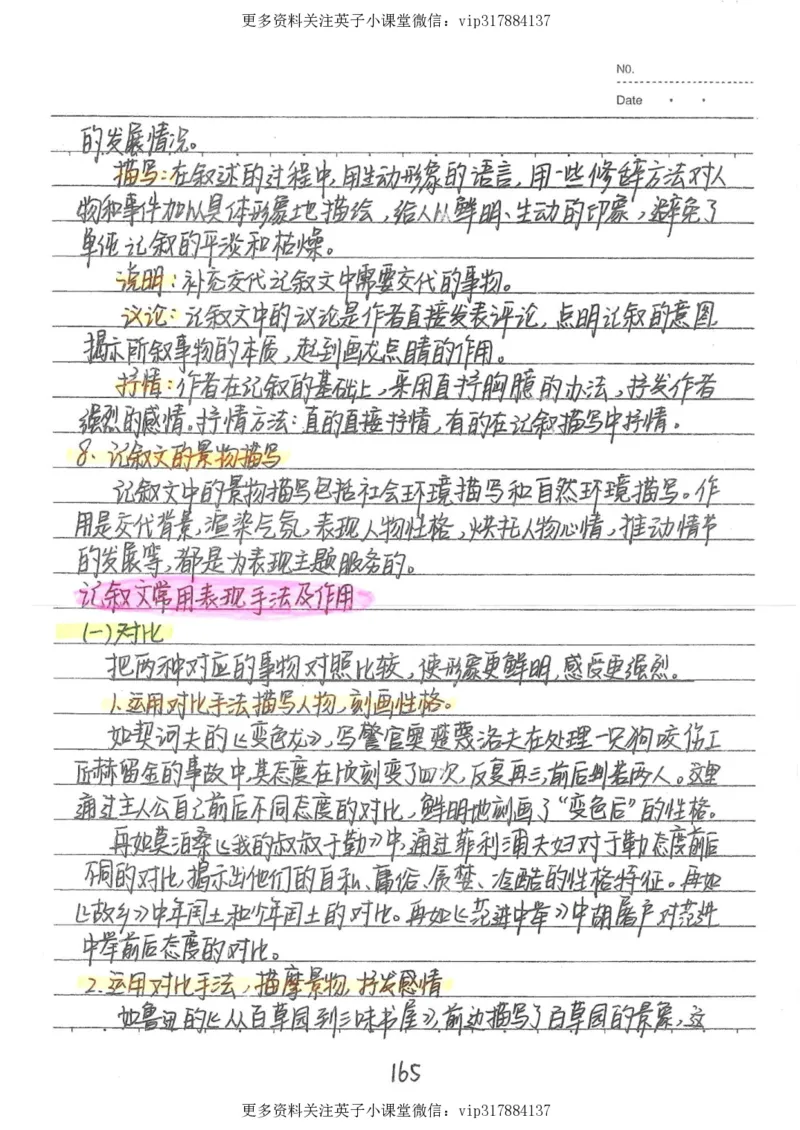 更多资料关注英子小课堂微信：vip317884137
NO.
Date
的发展情况。
描写：在叙述的过程中，用生动形象的语言，用一些修辞方法对人
物和事件加以具体形象地描绘，给人以鲜明、生动的印象，避免了
单纯记叙的平淡和枯燥。
说明：补充交代记叙文中需要交代的事物。
议论：记叙文中的议论是作者直接发表评论，点明记叙的意图，
揭示所叙事物的本质，起到画龙点睛的作用。
抒情：作者在记叙的基础上，采用直抒胸臆的办法，抒发作者
强烈的感情。抒情方法：直的直接抒情，有的在记叙描写中抒情。
8、记叙文的景物描写
记叙文中的景物描写包括社会环境描写和自然环境描写。作
用是交代背景，渲染气氛，表现人物性格，烘托人物心情，推动情节
的发展等，都是为表现主题服务的。
记叙文常用表现手法及作用
(一)对比
把两种对应的事物对照比较，使形象更鲜明，感受更强烈。
1.运用对比手法描写人物，刻画性格。
如契诃夫的《变色龙》，写警官奥楚蔑洛夫在处理一只狗咬伤工
匠赫留金的事故中，其态度在顷刻变了四次，反复再三，前后判若两人。这里
通过主人公自己前后不同态度的对比，鲜明地刻画了“变色后”的性格。
再如莫泊桑《我的叔叔于勒》中，通过菲利浦夫妇对于勒态度前后
不同的对比，揭示出他们的自私、庸俗、贪婪、冷酷的性格特征。再如
《故乡》中年闰土和少年闰土的对比。再如《范进中举》中胡屠户对范进
中举前后态度的对比。
2.运用对比手法，描摩景物，抒发感情
如鲁迅的《从百草园到三味书屋》，前边描写了百草园的景象，这
165
更多资料关注英子小课堂微信：vip317884137